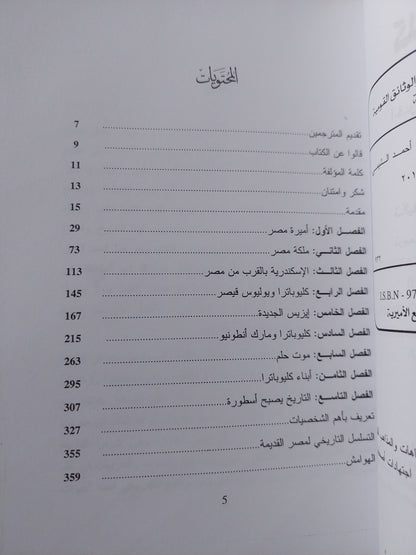 المحتويات
تقديم المترجمين 7
قالوا عن الكتاب 9
كلمة المؤلفة 11
شكر وامتنان 13
مقدمة 15
الفصل الأول: أميرة مصر 29
الفصل الثاني: ملكة مصر 73
الفصل الثالث: الإسكندرية بالقرب من مصر 113
الفصل الرابع: كليوباترا ويوليوس قيصر 145
الفصل الخامس: إيزيس الجديدة 167
الفصل السادس: كليوباترا ومارك أنطونيو 215
الفصل السابع: موت حلم 263
الفصل الثامن: أبناء كليوباترا 295
الفصل التاسع: التاريخ يصبح أسطورة 307
تعريف بأهم الشخصيات 327
التسلسل التاريخي لمصر القديمة 355
الهوامش 359
5
الوثائق القومية
أحمد
I.S.B.N - 97
الأميرية
اجتهادات